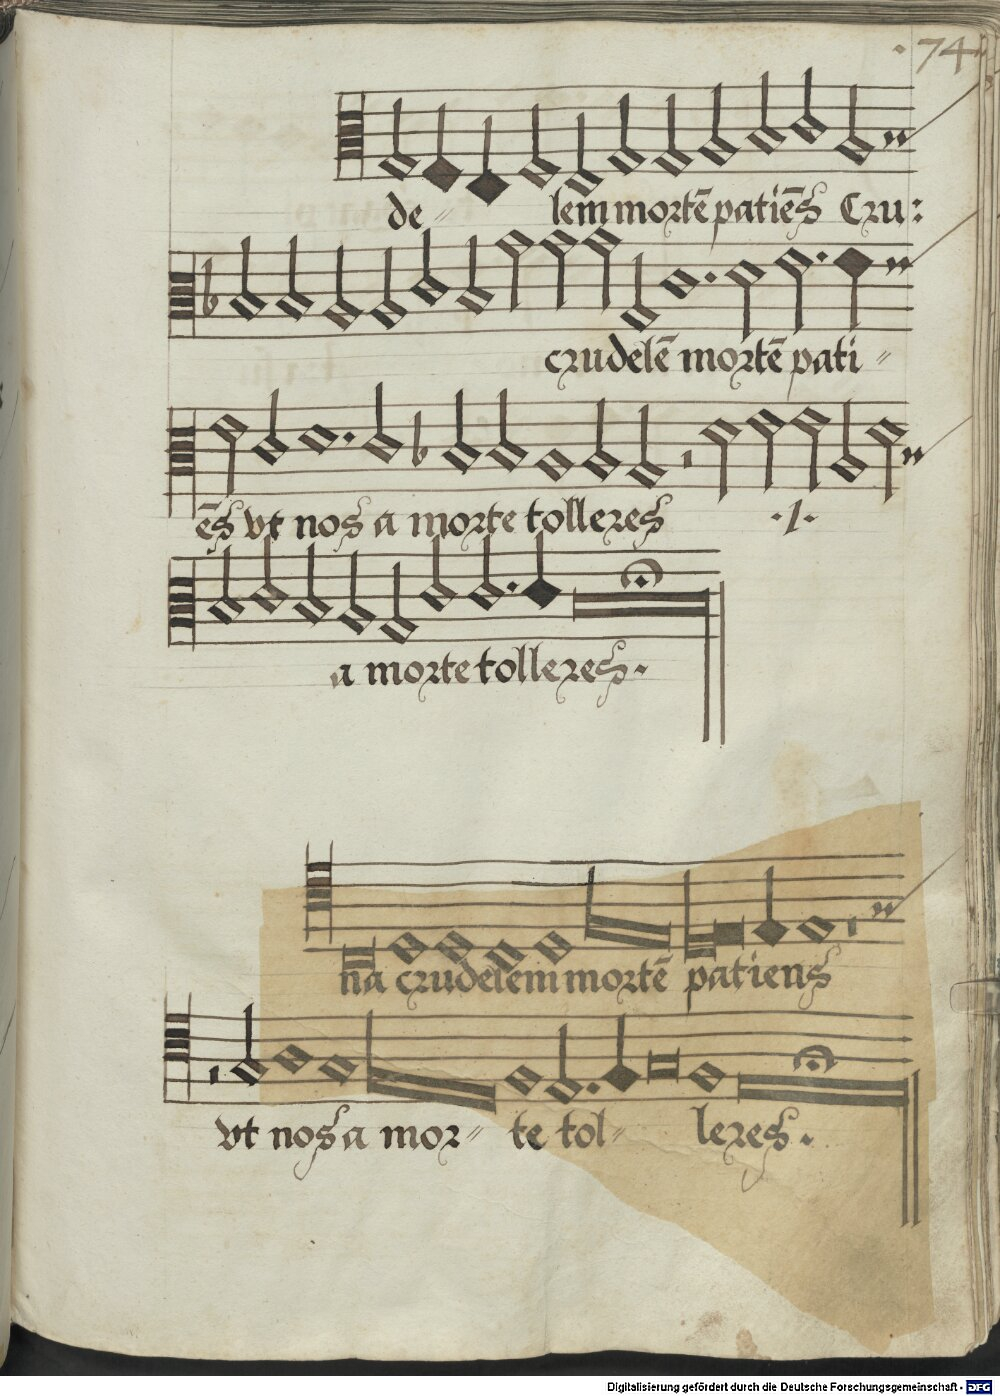 ·74·
de〃 lem mortē patiēs Cru:
crudelē mortē pati〃
ēs vt nos a morte tolleres ·1·
a morte tolleres.
na crudelem mortē patiens
vt nos a mor〃 te tol〃 leres.
Digitalisierung gefördert durch die Deutsche Forschungsgemeinschaft - DFG